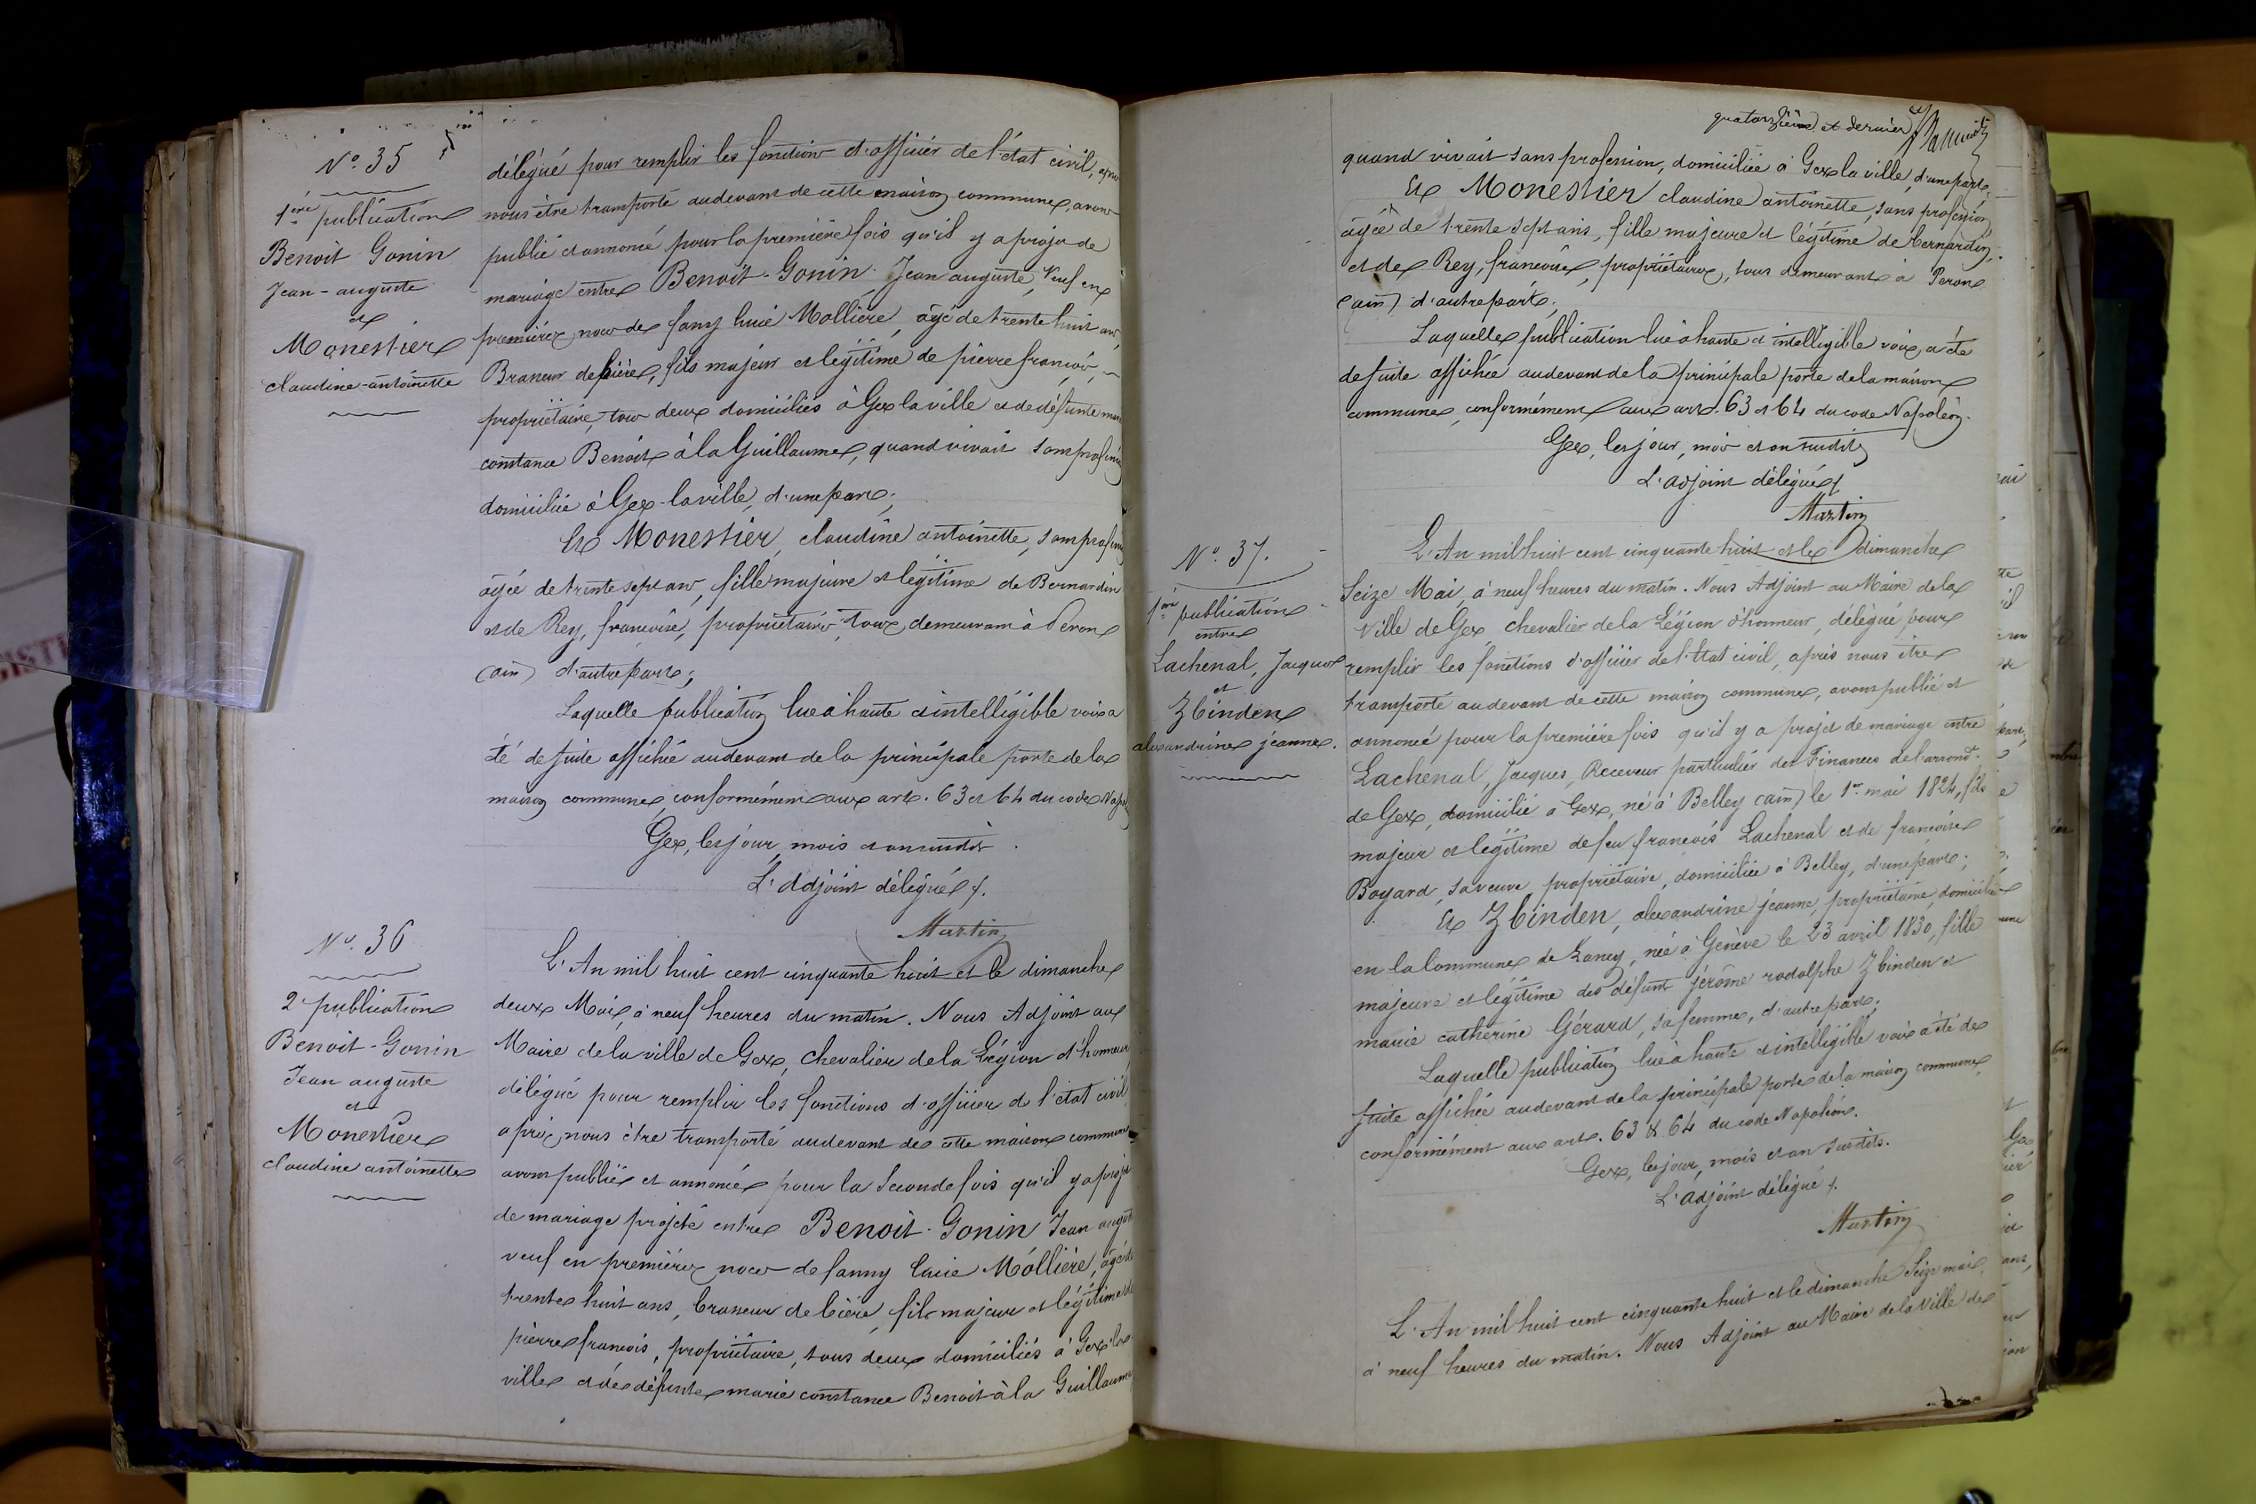 N° 35
1ère publication
Benoit Gonin
Jean-auguste
et
Monestier
claudine-antoinette
délégué pour remplir les fonction d'officier de l'état civil, après
nous être transporté audevant de cette maison commune, avons
publié et annoncé pour la première fois qu'il y a projet de
mariage entre Benoit-Gonin Jean auguste, veuf en
premières noces de fany lucie Mollière, âgé de trente huit ans,
Brasseur de bière, fils majeur et légitime de pierre françois,
propriétaire, tous deux domiciliés à Gex la ville et de défunte marie
constance Benoit à la Guillaume, quand vivait sans profession
domiciliée à Gex-la ville, d'une part;
Et Monestier, claudine antoinette, sans profession
agée de trente sept ans, fille majeure et légitime de Bernardin
et de Rey, francoise, propriétaires, tous demeurant à Peron
(ain) d'autre part;
Laquelle publication lue à haute et intelligible voix a
été de suite affichée audevant de la principale porte de la
maison commune, conformément aux art. 63 et 64 du code Napo
Gex, les jour, mois et an susdits.
L'Adjoint délégué.
Martin
N° 36
2 publication
Benoit-Gonin
Jean auguste
et
Monestier
claudine antoinette
L'An mil huit cent cinquante huit et le dimanche
deux Mai, à neuf heures du matin. Nous Adjoint au
Maire de la ville de Gex, chevalier de la Légion d'honneur
délégué pour remplir les fonctions d'officier de l'état civil
après nous être transporté audevant de cette maison commune
avons publié et annoncé pour la seconde fois qu'il y a projet
de mariage projeté entre Benoit-Gonin Jean auguste
veuf en premières noces de fanny lucie Mollière, âgé de
trente huit ans, brasseur de bière, fils majeur et légitime de
pierre francois, propriétaire, tous deux domiciliés à Gex la
ville et de défunte marie constance Benoit à la Guillaume
quatorzième et dernier
quand vivait sans profession, domiciliée à Gex la ville, d'une part,
Et Monestier claudine antoinette, sans profession,
âgée de trente sept ans, fille majeure et légitime de bernardin,
et de Rey, francoise, propriétaires, tous demeurants à Peron
(ain) d'autre part;
Laquelle publication lue à haute et intelligible voix, a été
de suite affichée audevant de la principale porte de la maison
commune, conformément aux art. 63 et 64 du code Napoléon.
Gex, les jour, mois et an susdits
L'adjoint délégué
Martin
N° 37.
1ère publication
entre
Lachenal, Jacques
et
Zbinden
alexandrine jeanne.
L'An mil huit cent cinquante huit et le dimanche
Seize Mai, à neuf heures du matin. Nous Adjoint au Maire de la
ville de Gex, chevalier de la Légion d'honneur, délégué pour
remplir les fonctions d'officier de l'état civil, après nous être
transporté audevant de cette maison commune, avons publié et
annoncé pour la première fois qu'il y a projet de mariage entre
Lachenal, Jacques, Receveur particulier des Finances de l'arrond.t
de Gex, domicilié à Gex, né à Belley (ain) le 1er mai 1824, fils
majeur et légitime de feu francois Lachenal et de francoise
Bogard, sa veuve propriétaire, domiciliée à Belley, d'une part;
Et Zbinden, alexandrine jeanne, propriétaire, domiciliée
en la Commune de Lancy, née à Genève le 23 avril 1830, fille
majeure et légitime des défunt jérôme rodolphe Zbinden et
marie catherine Gérard, sa femme, d'autre part;
Laquelle publication lue à haute et intelligible voix a été de
suite affichée audevant de la principale porte de la maison commune,
conformément aux art. 63 & 64 du code Napoléon.
Gex, les jour, mois et an susdits.
L'adjoint délégué.
Martin
L'An mil huit cent cinquante huit et le dimanche Seize mai,
à neuf heures du matin. Nous Adjoint au Maire de la ville de